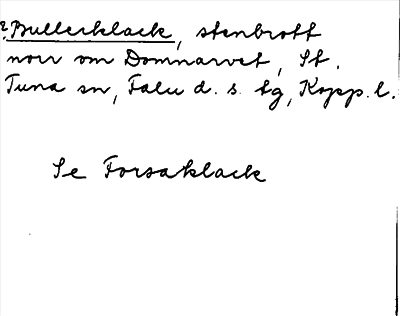 ? Bullerklack, stenbrott
norr om Domnarvet, St.
Tuna sn, Falu d. s. tg, Kopp. l.
Se Forsaklack